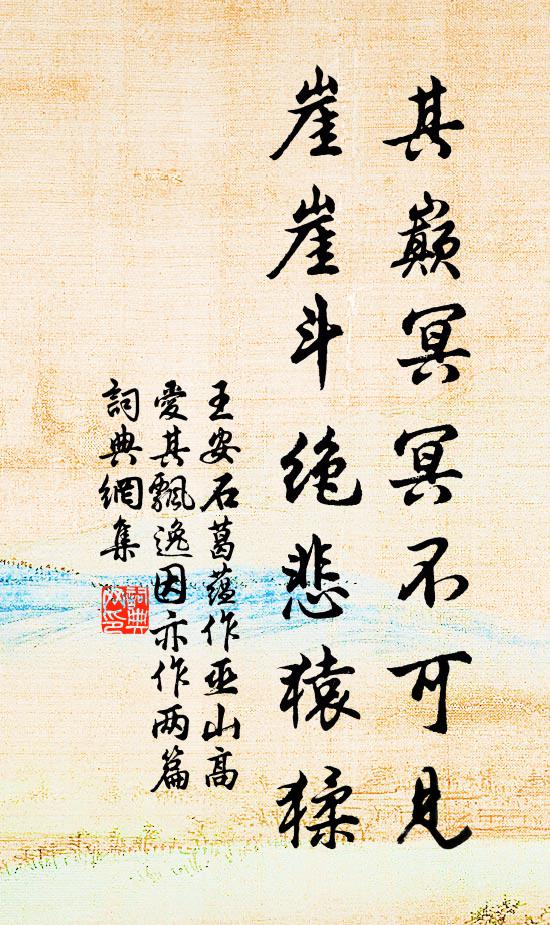 其巔冥冥不可見
崖崖斗绝悲猿猱
王安石葛蕴作巫山高
愛其飄逸因亦作两篇
詞典網集